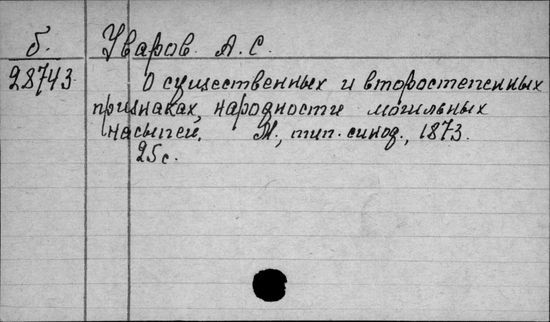 б. Уваров. А. С.
28743. О существенных и второстепенных
признаках, народности могильных
насыпей. М., тип. синод., 1873.
25 с.